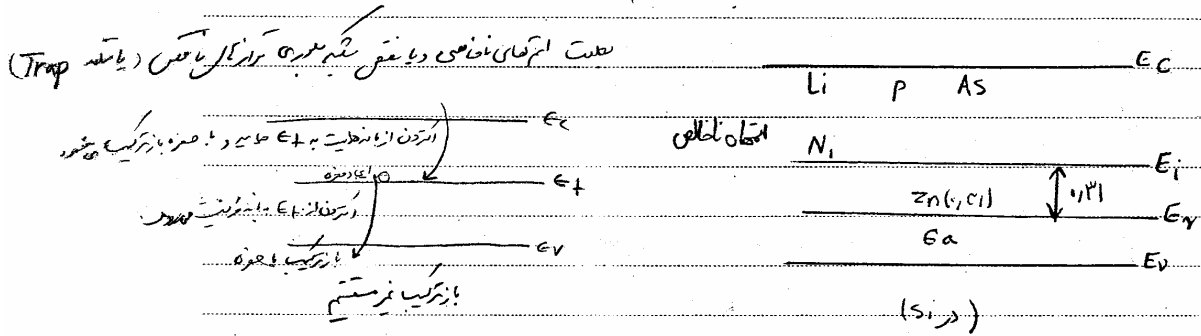 بعلت اتم‌های ناخالصی و یا نقص شبکه بلوری تراز تال یا نقص (یا تله Trap)
Ec
الکترون از باند هدایت به Et می‌آید و با حفره بازترکیب می‌شود
ایجاد حفره
Et
الکترون از Et به باند ظرفیت می‌رود
Ev
بازترکیب با حفره
بازترکیب غیر مستقیم
Ec
Li P AS
ناخالصی
Ni
Ei
Zn(۰٫۳۱)
۰٫۳۱
Er
Ga
Ev
(در Si)